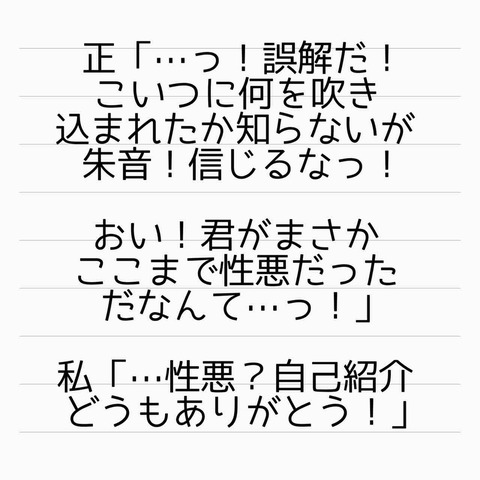 正「…っ！誤解だ！
こいつに何を吹き
込まれたか知らないが
朱音！信じるなっ！
おい！君がまさか
ここまで性悪だった
だなんて…っ！」
私「…性悪？自己紹介
どうもありがとう！」